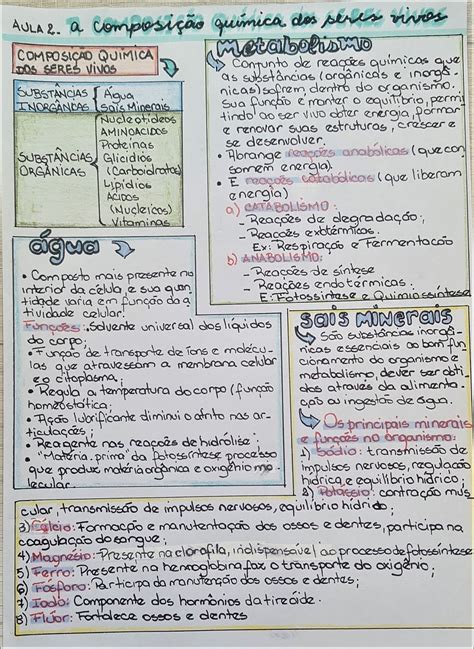 AULA 2. a composição química dos seres vivos
COMPOSIÇÃO QUÍMICA
DOS SERES VIVOS
SUBSTÂNCIAS
INORGÂNICAS
Água
Sais Minerais
SUBSTÂNCIAS
ORGÂNICAS
Nucleotídeos
AMINOÁCIDOS
Proteínas
Glicídios
(Carboidratos)
Lipídios
ÁCIDOS
(Nucleicos)
Vitaminas
metabolismo
Conjunto de reações químicas que
as substâncias (orgânicas e inorgâ-
nicas) sofrem dentro do organismo.
Sua função é manter o equilíbrio, permi
tindo ao ser vivo obter energia, formar
e renovar suas estruturas, crescer e
se desenvolver.
• Abrange reações anabólicas (que con
somem energia)
• E reações catabólicas (que liberam
energia)
a) CATABOLISMO:
- Reações de degradação;
- Reações exotérmicas.
Ex: Respiração e Fermentação
b) ANABOLISMO:
- Reações de síntese
- Reações endotérmicas.
E: Fotossíntese e Quimiossíntese
água
• Composto mais presente no
interior da célula, e sua quan
tidade varia em função da a
tividade celular.
Funções: Solvente universal dos líquidos
do corpo;
• Função de transporte de íons e molécu-
las que atravessam a membrana celular
e o citoplasma;
• Regula a temperatura do corpo (função
homeostática);
• Ação lubrificante diminui o atrito nas ar-
ticulações;
• Reagente nas reações de hidrólise;
• "Matéria-prima" da fotossíntese processo
que produz matéria orgânica e oxigênio mo
lecular.
sais minerais
São substâncias inorgâ-
nicas essenciais ao bom fun
cionamento do organismo e
metabolismo, dever ser obti
dos através da alimenta
ção ou ingestão de água.
Os principais minerais
e funções no organismo:
1) Sódio: transmissão de
impulsos nervosos, regulação
hídrica e equilíbrio hídrico;
2) Potássio: contração mus
cular, transmissão de impulsos nervosos, equilíbrio hídrico;
3) Cálcio: Formação e manutentação dos ossos e dentes, participa na
coagulação do sangue;
4) Magnésio: Presente na clorofila, indispensável ao processo de fotossíntese
5) Ferro: Presente na hemoglobina faz o transporte do oxigênio;
6) Fósforo: Participa da manutenção dos ossos e dentes;
7) Iodo: Componente dos hormônios da tireóide.
8) Flúor: Fortalece ossos e dentes